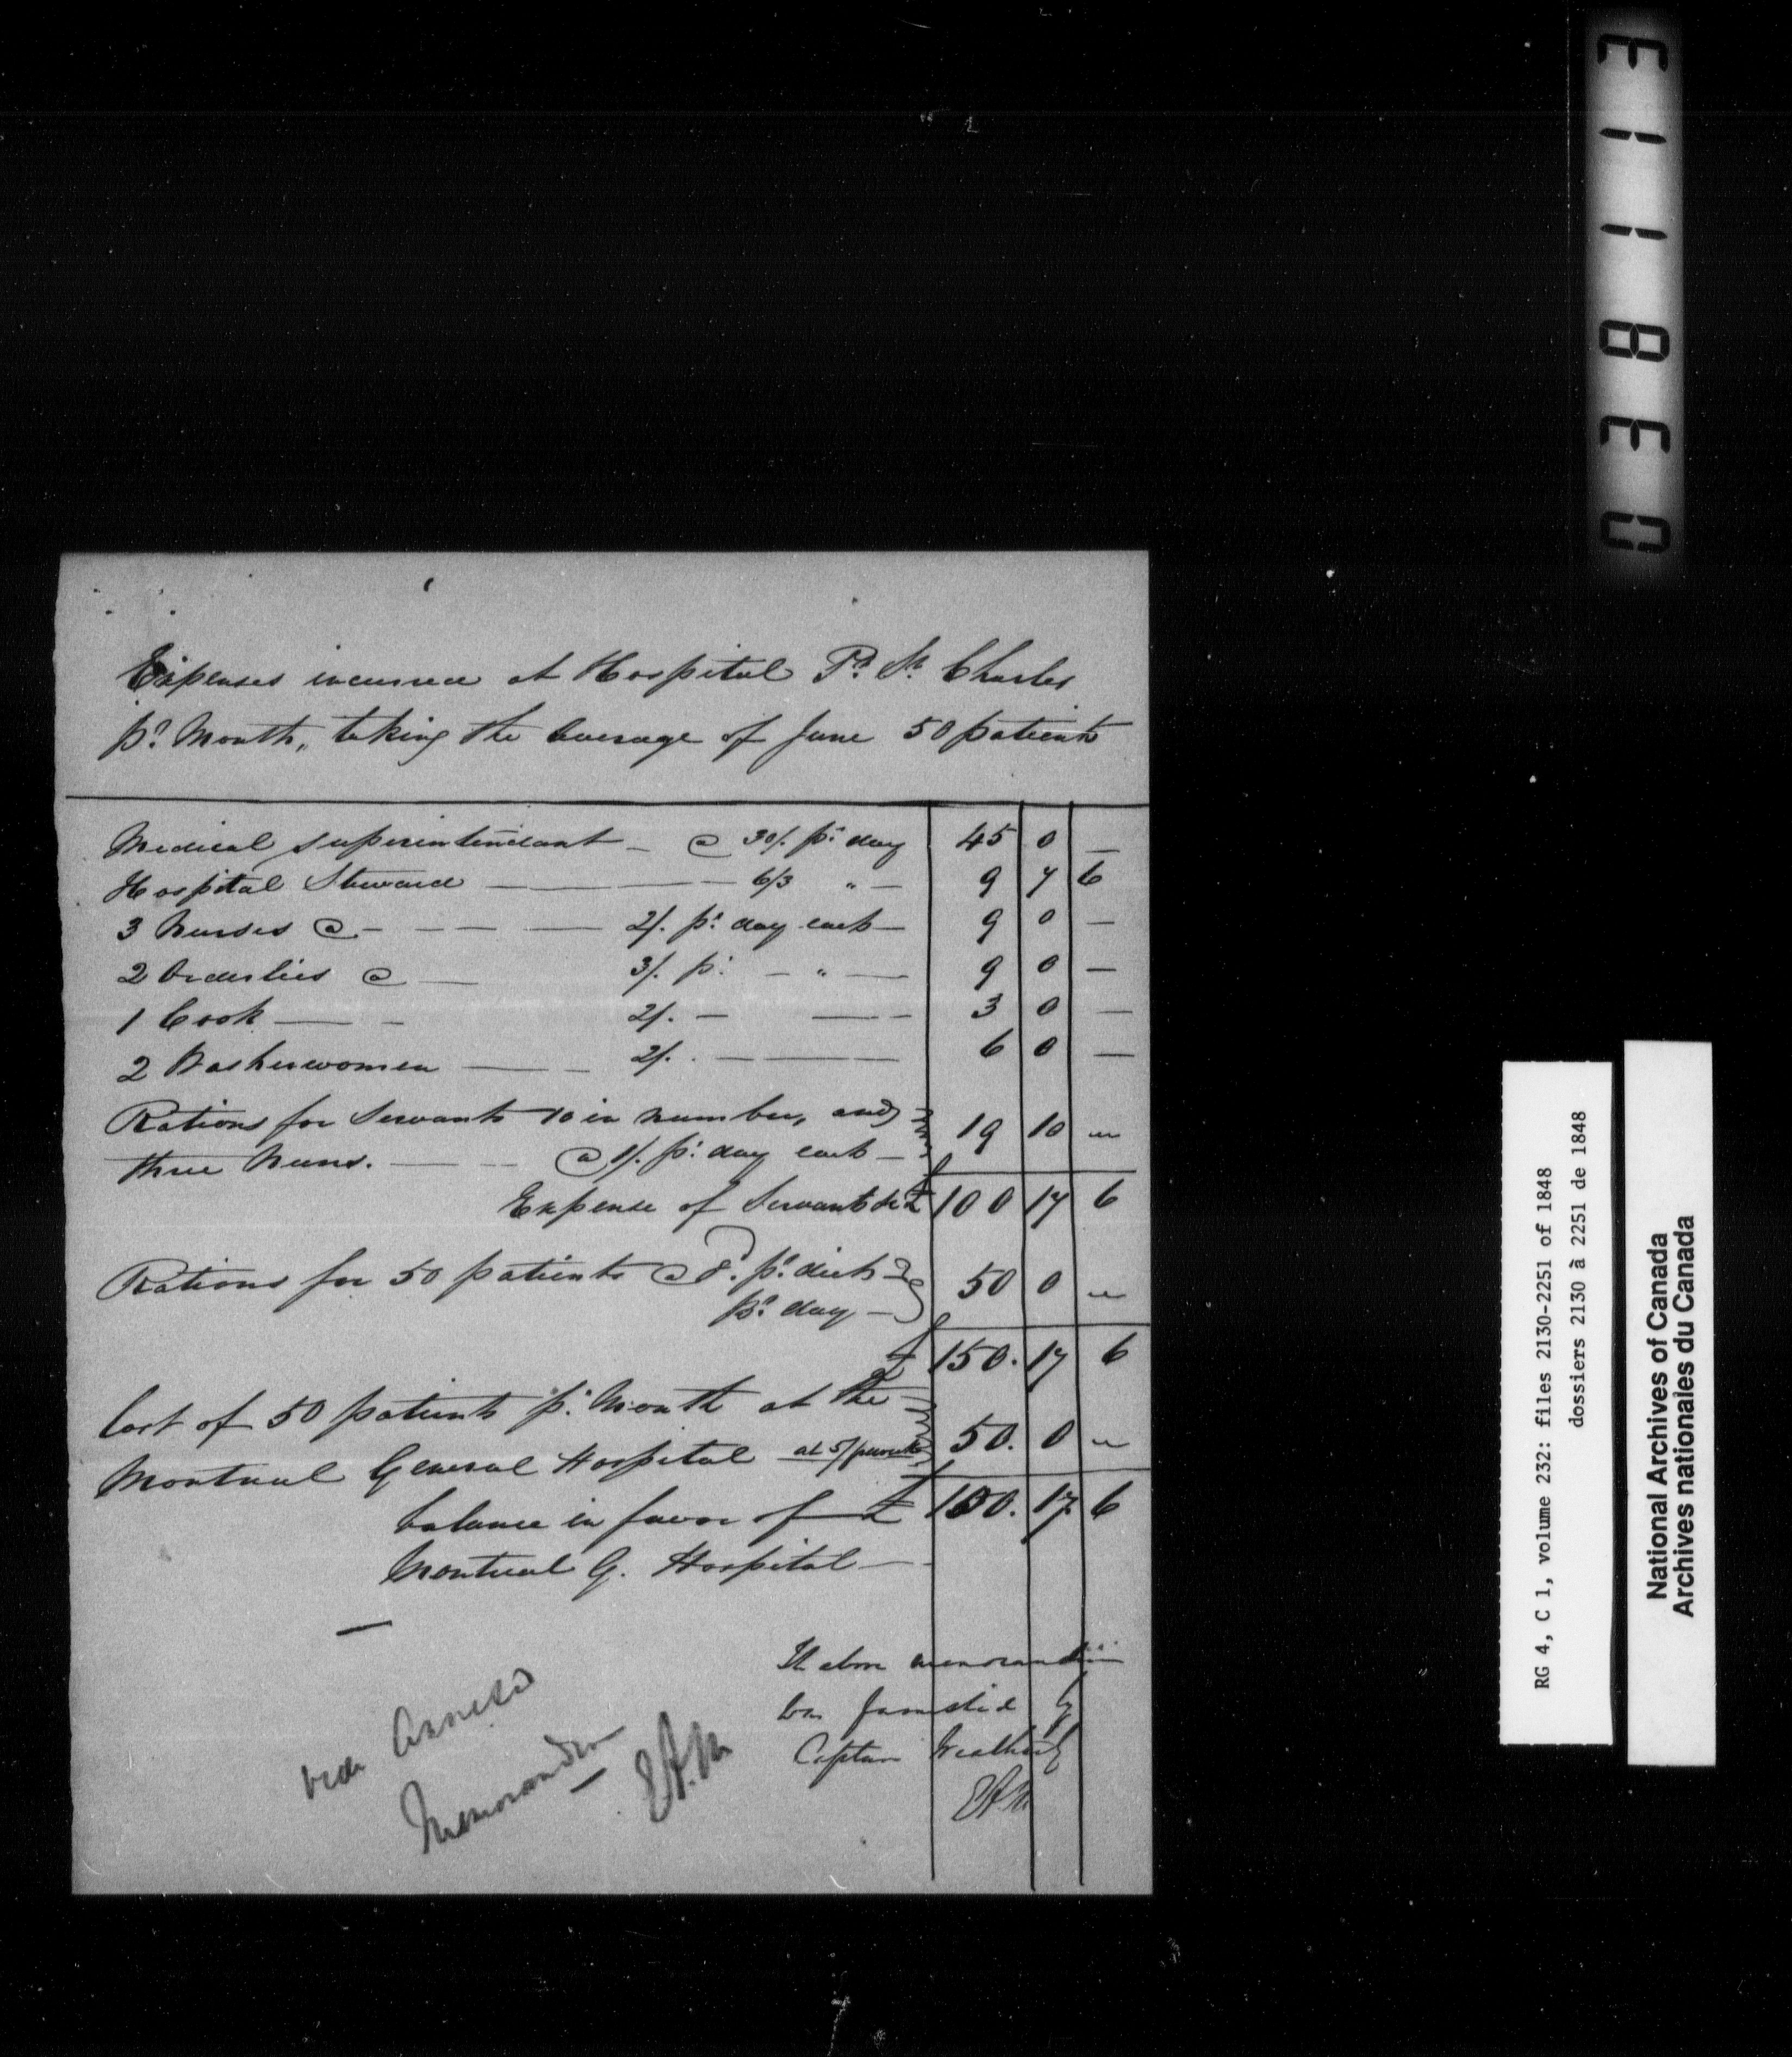 Expenses incurred at Hospital Pt. St. Charles
pr. Month, taking the average of June 50 patients
Medical superintendant — @ 30/. pr. day 45 0 —
Hospital Steward — 6/3 " — 9 7 6
3 Nurses @ — 2/. pr. day each — 9 0 —
2 Orderlies @ — 3/. pr. — " — 9 0 —
1 Cook — 2/. — 3 0 —
2 Washerwomen — 2/. — 6 0 —
Rations for Servants 10 in number, and
three Nuns. — @ 1/. pr. day each — 19 10 "
Expense of Servants &c £ 100 17 6
Rations for 50 patients @ 8d. pr. diet
pr. day — 50 0 "
£ 150. 17 6
Cost of 50 patients pr. Month at the
Montreal General Hospital at 5/ per week 50. 0 "
balance in favor of £ 100. 17 6
Montreal G. Hospital —
The above memorandum
was furnished by
Captain
vide Annexed
Memorandum
National Archives of Canada
Archives nationales du Canada
RG 4, C 1, volume 232: files 2130-2251 of 1848
dossiers 2130 à 2251 de 1848
038113